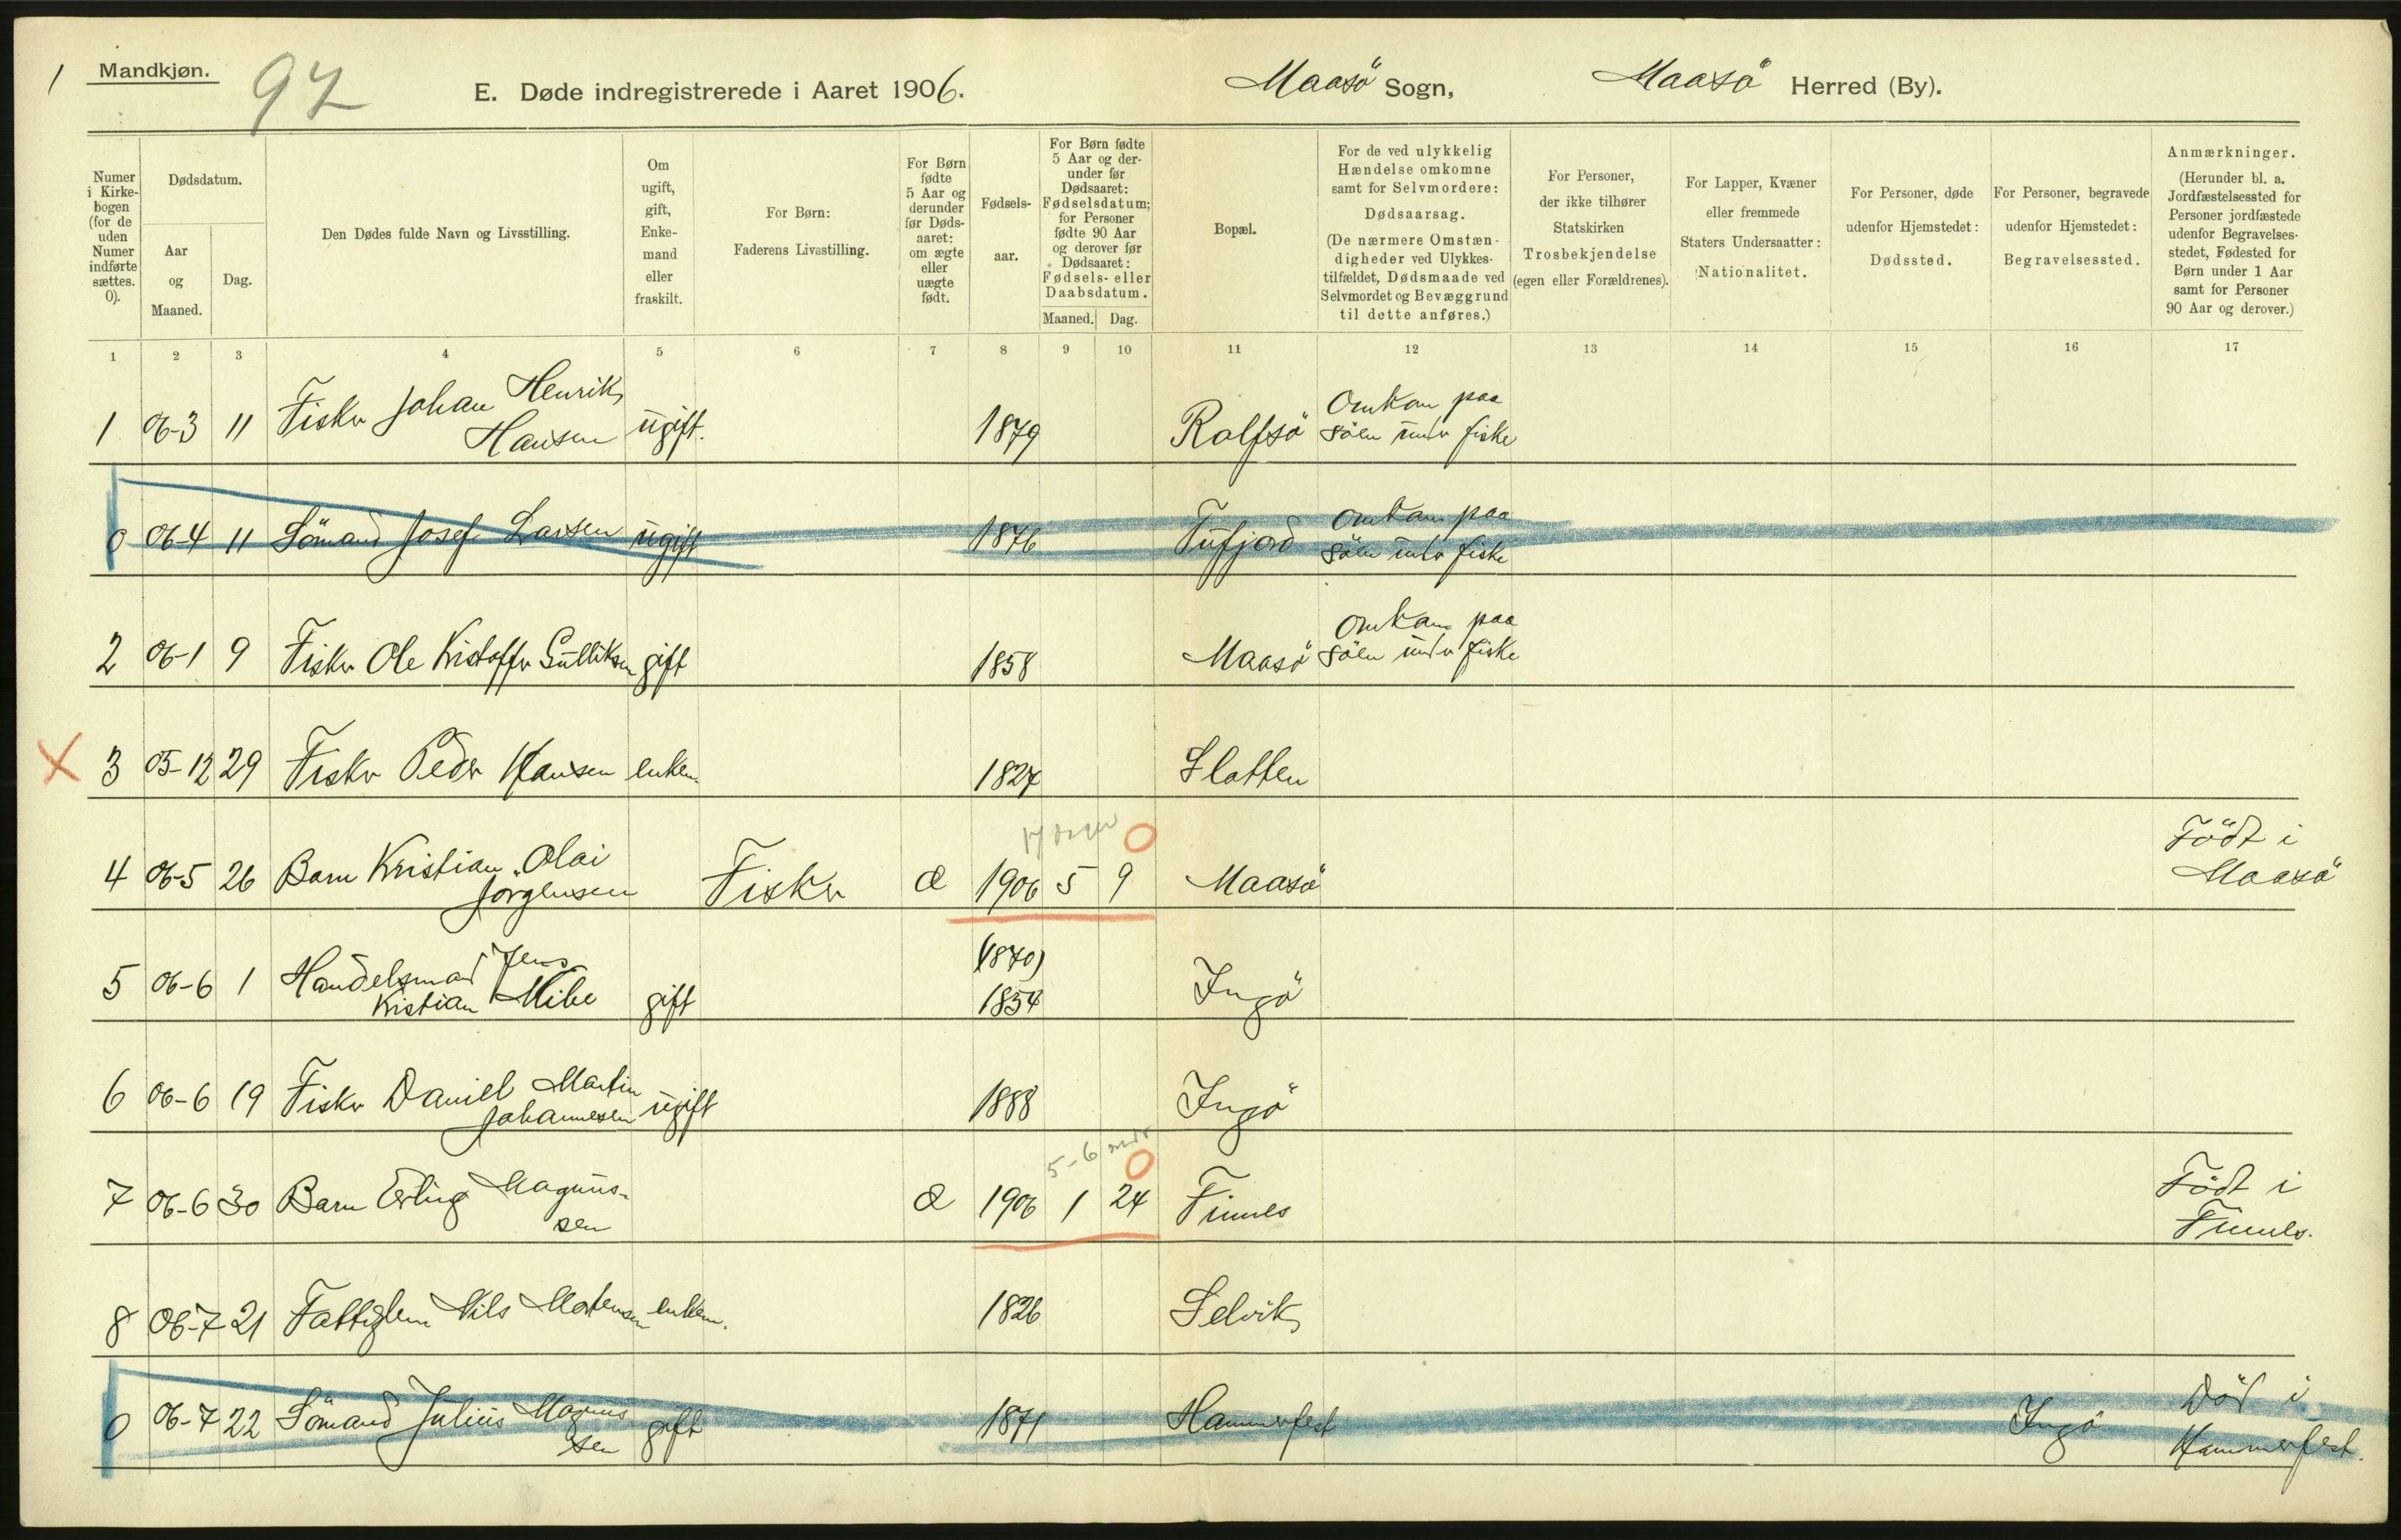 1
Mandkjøn.
97
E. Døde indregistrerede i Aaret 1906.
Maasö Sogn,
Maasö Herred (By).
Numer
i Kirke-
bogen
(for de
uden
Numer
indførte
sættes.
0).
Dødsdatum.
Aar
og
Maaned.
Dag.
Den Dødes fulde Navn og Livsstilling.
Om
ugift,
gift,
Enke-
mand
eller
fraskilt.
For Børn:
Faderens Livsstilling.
For Børn
fødte
5 Aar og
derunder
før Døds-
aaret:
om ægte
eller
uægte
født.
Fødsels-
aar.
For Børn fødte
5 Aar og der-
under før
Dødsaaret:
Fødselsdatum;
for Personer
fødte 90 Aar
og derover før
Dødsaaret:
Fødsels- eller
Daabsdatum.
Maaned. Dag.
Bopæl.
For de ved ulykkelig
Hændelse omkomne
samt for Selvmordere:
Dødsaarsag.
(De nærmere Omstæn-
digheder ved Ulykkes-
tilfældet, Dødsmaade ved
Selvmordet og Bevæggrund
til dette anføres.)
For Personer,
der ikke tilhører
Statskirken
Trosbekjendelse
(egen eller Forældrenes).
For Lapper, Kvæner
eller fremmede
Staters Undersaatter:
Nationalitet.
For Personer, døde
udenfor Hjemstedet:
Dødssted.
For Personer, begravede
udenfor Hjemstedet:
Begravelsessted.
Anmærkninger.
(Herunder bl. a.
Jordfæstelsessted for
Personer jordfæstede
udenfor Begravelses-
stedet, Fødested for
Børn under 1 Aar
samt for Personer
90 Aar og derover.)
1 2 3 4 5 6 7 8 9 10 11 12 13 14 15 16 17
1 06-3 11 Fisker Johan Henrik
Hansen ugift. 1879 Rolfsö Omkom paa
söen under fiske
0 06-4 11 Sömand Josef Larsen ugift 1876 Tufjord Omkom paa
söen under fiske
2 06-1 9 Fisker Ole Kristoffer Gulliksen gift 1858 Maasö Omkom paa
söen under fiske
3 05-12 29 Fisker Peder Hansen enkem. 1827 Slotten
17 dager
4 06-5 26 Barn Kristian Olai
Jörgensen Fisker æ 1906 5 9 Maasö Födt i
Maasö
5 06-6 1 Handelsmand Jens
Kristian Mibe gift (1870)
1854 Ingö
6 06-6 19 Fisker Daniel Martin
Johannesen ugift 1888 Ingö
5-6 mdr
7 06-6 30 Barn Erling Magnus-
sen æ 1906 1 24 Finnes Födt i
Finnes.
8 06-7 21 Fattiglem Nils Mortensen enkem. 1826 Selvik
0 06-7 22 Sömand Julius Magnus
sen gift 1871 Hammerfest Ingö Död i
Hammerfest.